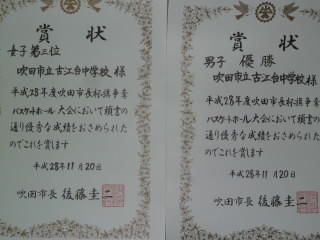 賞状
女子第三位
吹田市立古江台中学校 様
平成28年度吹田市長杯旗争奪
バスケットボール大会において頭書の
通り優秀な成績をおさめられた
のでこれを賞します
平成28年11月20日
吹田市長 後藤圭二
賞状
男子 優勝
吹田市立古江台中学校 様
平成28年度吹田市長杯旗争奪
バスケットボール大会において頭書の
通り優秀な成績をおさめられた
のでこれを賞します
平成28年11月20日
吹田市長 後藤圭二